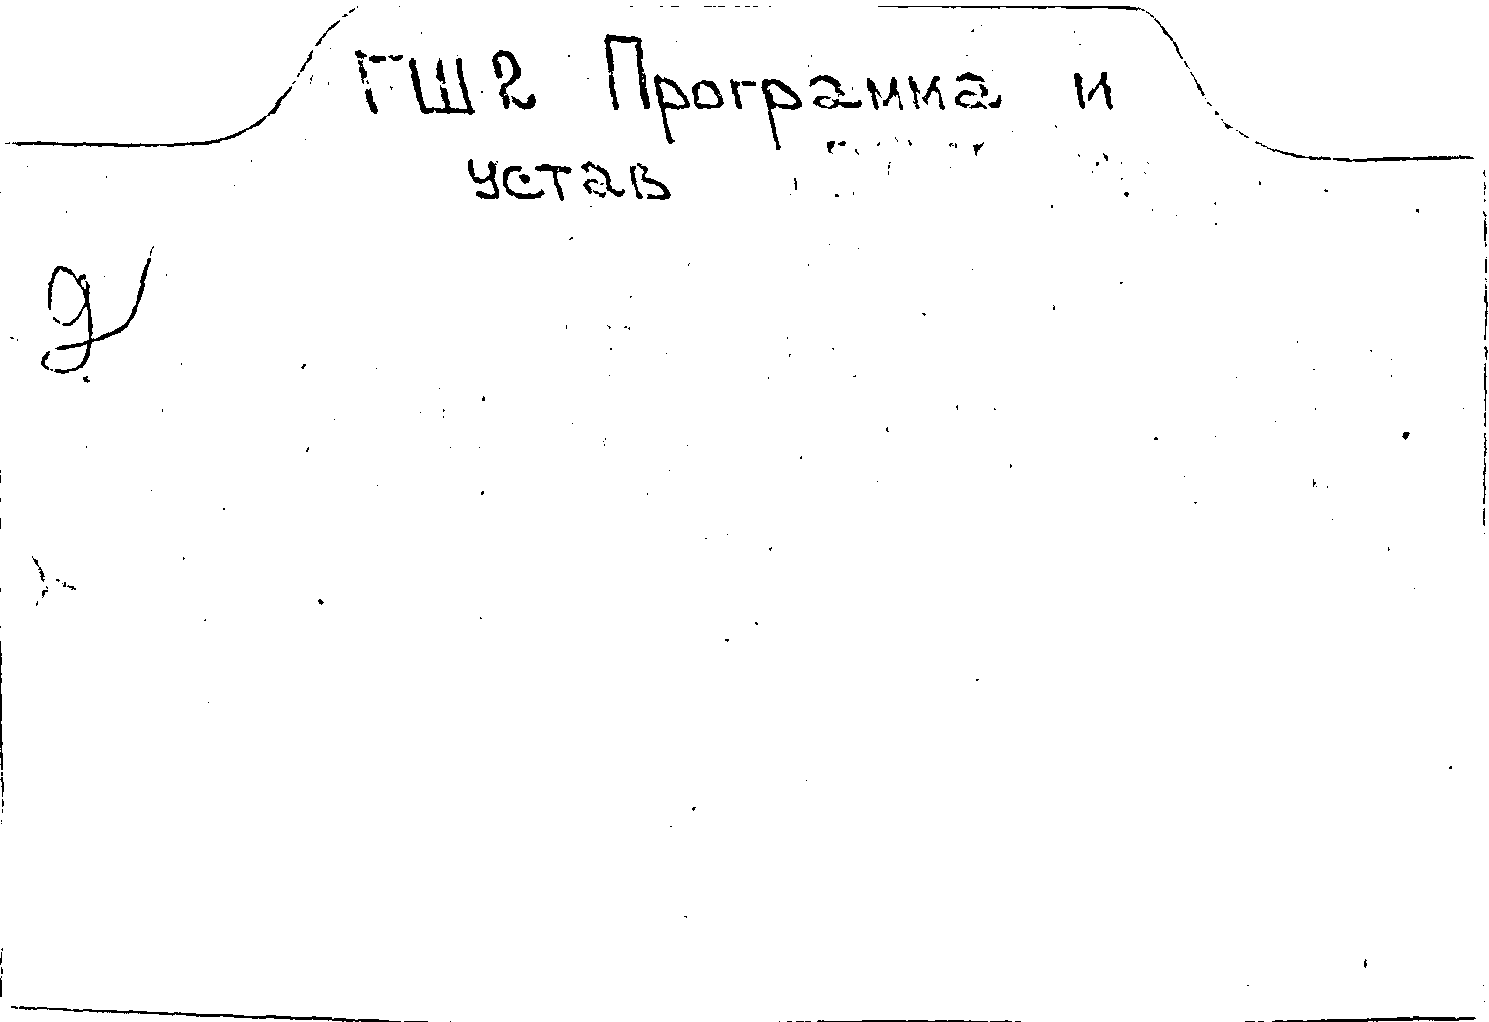 ГШ2 Программа и
устав